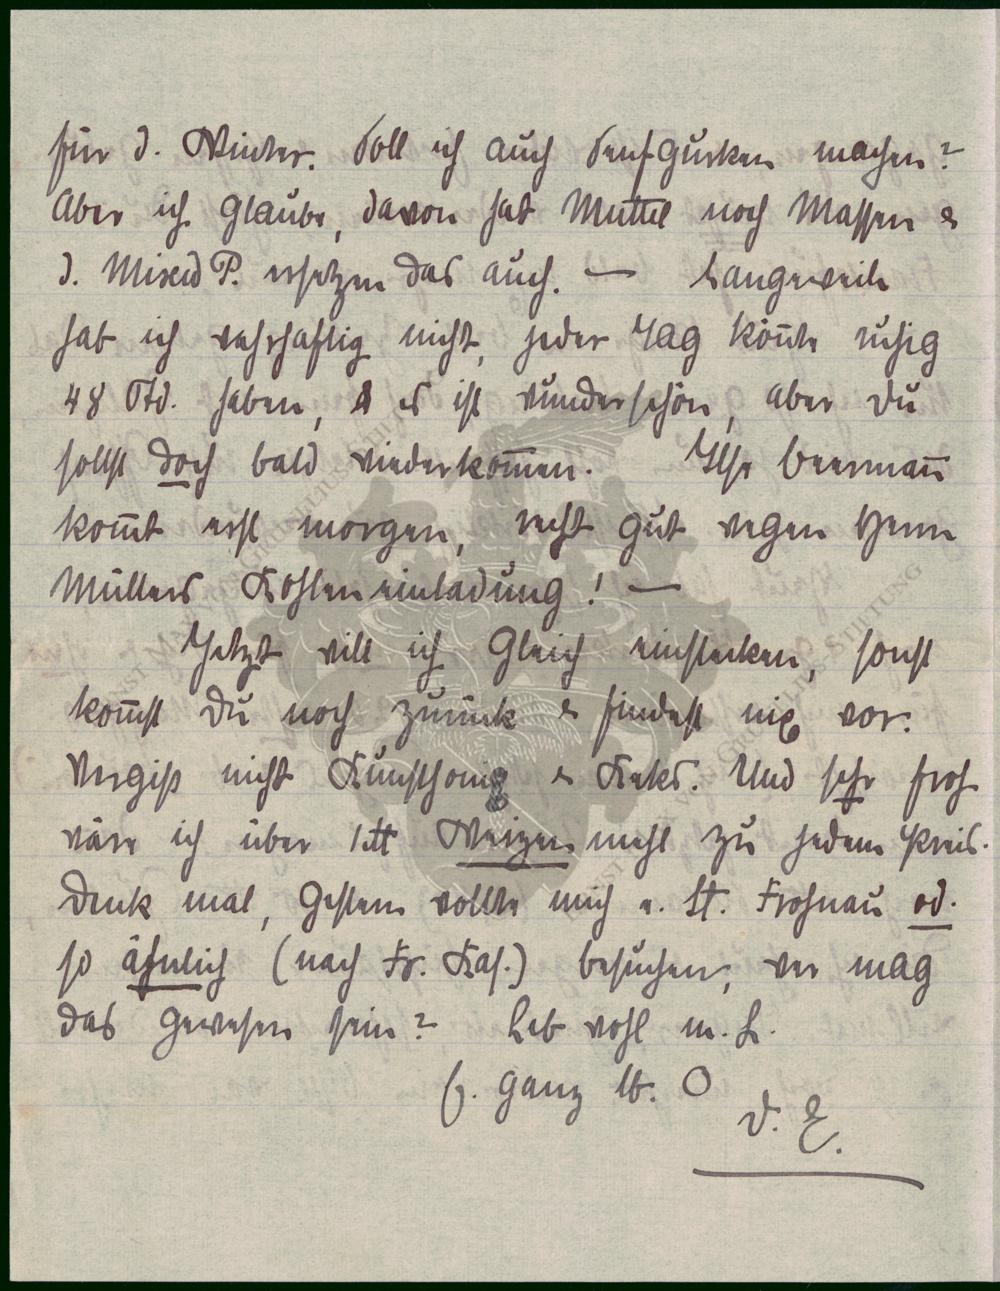 für d. Winter. Soll ich auch Senfgurken machen?
Aber ich glaube, davon hat Muttel noch Massen &
d. Mixed P. ersetzen das auch. — Langeweile
hab ich wahrhaftig nicht, jeder Tag könnte ruhig
48 Std. haben, & es ist wunderschön, aber Du
sollst doch bald wiederkommen. Ilse Beermann
kommt erst morgen, recht gut wegen Herrn
Müllers Kohleneinladung! —
Jetzt will ich gleich einstecken, sonst
kommst Du noch zurück & findest nix vor.
Vergiß nicht Kunsthonig & Keks. Und sehr froh
wäre ich über 1 ℔ Weizenmehl zu jedem Preis.
Denk mal, gestern wollte mich e. St. Frohnau od.
so ähnlich (nach Fr. Kas.) besuchen, wer mag
das gewesen sein? Leb wohl m. L.
E. ganz lb. O
D. E.